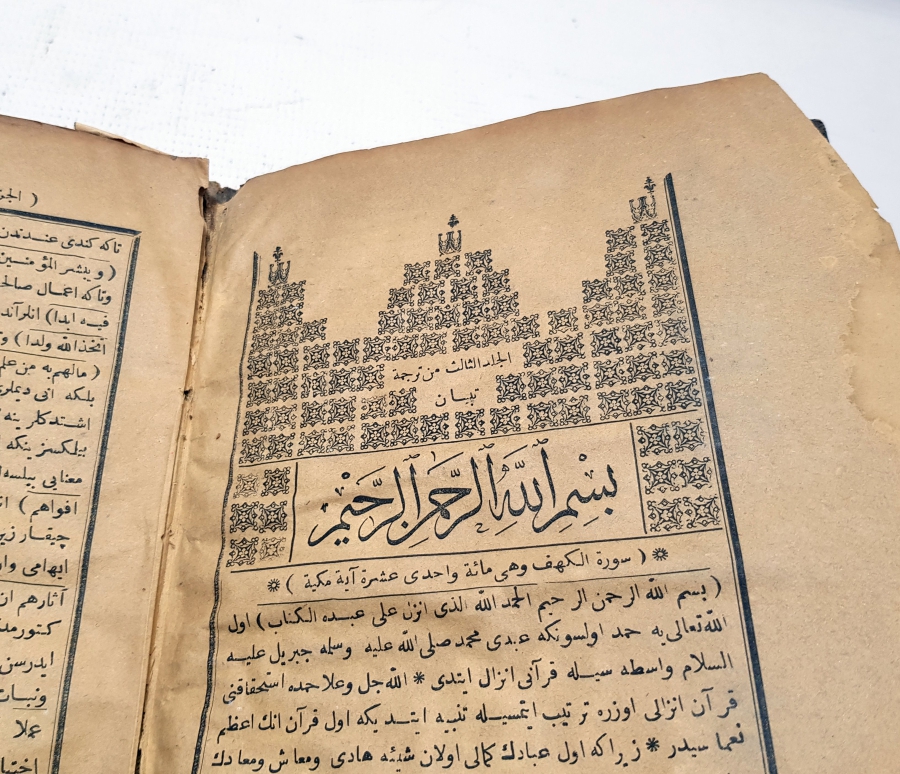 الجلد الثالث من ترجمة
تبيان
بسم الله الرحمن الرحيم
( سورة الكهف وهى مائة واحدى عشرة آية مكية )
( بسم الله الرحمن الرحيم الحمد لله الذى انزل على عبده الكتاب ) اول
الله تعالى يه حمد اولسونكه عبدى محمد صلى الله عليه وسلمه جبريل عليه
السلام واسطه سيله قرآنى انزال ايتدى * الله جل وعلا حمده استحقاقنى
قرآن انزالى اوزره ترتيب ايتمسيله تنبيه ايتديكه اول قرآن انك اعظم
نعما سيدر * زيرا كه اول عبادك كمالى اولان شيئه هادى ومعاش ومعادك
( الجز
تاكه كندى عندندن
( ويبشر المؤمنين
وتاكه اعمال صالحه
فيه ابدا ) انلر
اتخذ الله ولدا )
( مالهم به من علم
بلكه انى
اشتدكلرينه
بيلكسزينكه
معنايى بيلسه
افواهم )
چيقار زير
ايهامى وار
آثارهم ان
ايدرسن
ونبات
عملا